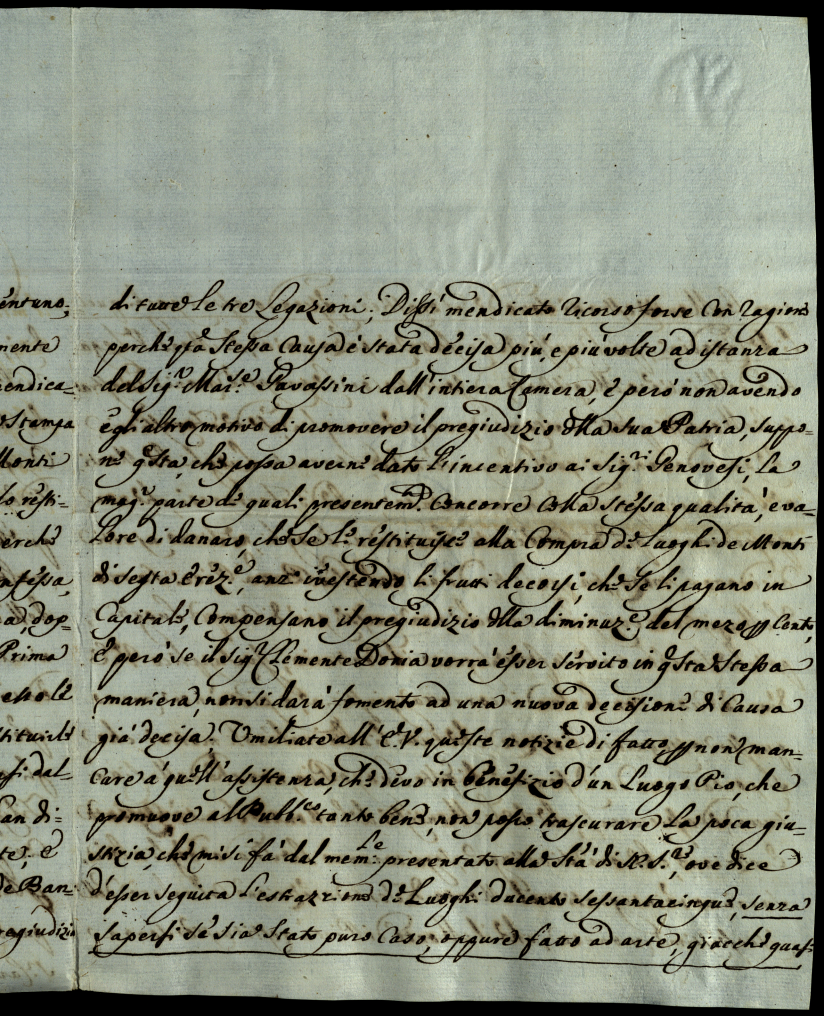 entuno, di tutte le tre Legazioni; Dissi mendicato ricorso forse con ragione
mente perche q.ta stessa causa è stata decisa più, e più volte ad istanza
endica= del Sig.r Mar.e Gavassini dall'intiera Camera, e però non avendo
stampa egli altro motivo di promovere il pregiudizio della sua Patria, suppo=
Monti ne q.sta, che possa averne dato l'incentivo ai Sig.ri Genovesi, la
lo resti= mag.r parte de quali presentem.te concorre colla stessa qualità, e va=
erche lore di danaro, che se le restituisce alla Compra de Luoghi de Monti
nfessa, di sesta erez.e, anzi investendo li frutti decorsi, che se li pagano in
a, dop= Capitale, compensano il pregiudizio della diminuz.e del mezo p Cento,
Prima e però se il Sig.r Clemente Doria vorrà esser servito in q.sta stessa
maniera, non si darà fomento ad una nuova decisione di Causa
stituirle già decisa. Umiliate all'E.V. queste notizie di fatto p non man=
si dal= care a quell'assistenza, che devo in benefizio d'un Luogo Pio, che
an di= promuove al Pubb.co tanto bene, non posso trascurare la poca giu=
te, e stizia, che mi si fà dal mem.le presentato alla S.tà di N. S.re, ove dice
de Ban= d'esser seguita l'estrazione de Luoghi ducento sessantacinque, senza
regiudizio sapersi se sia stato puro Caso, oppure fatto ad arte, giacchè quasi